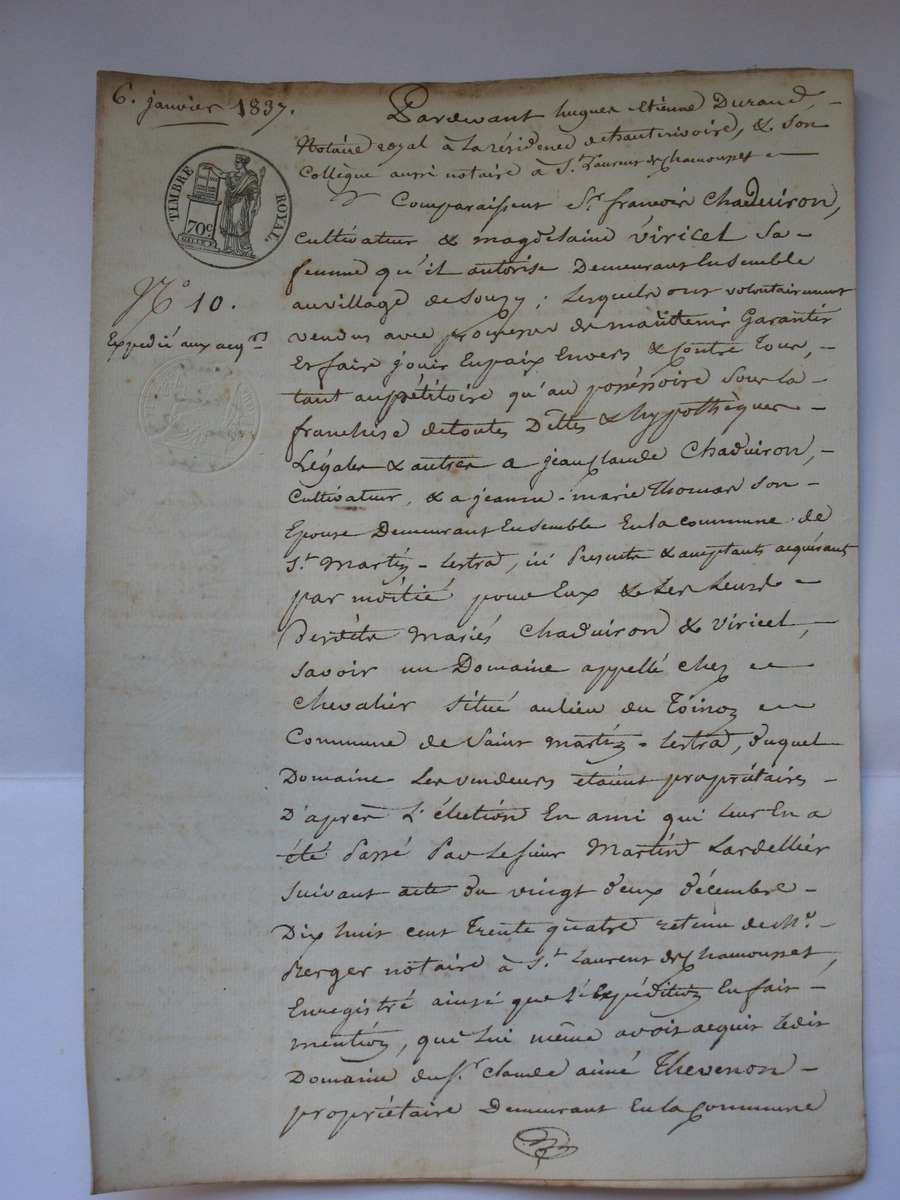 6. janvier 1837.
TIMBRE ROYAL.
70c
N° 10.
Expédié aux acqrs
Pardevant hugues etienne Durand,
Notaire royal à la résidence de hauterivoire, & son
Collègue aussi notaire à St. Laurent de Chamousset
Comparaissent Sr. francois Chaduiron,
Cultivateur & magdelaine Viricel sa
femme qu'il autorise Demeurant Ensemble
au village de Souzy ; Lesquels ont volontairement
vendus avec promesse de maintenir Garantir
Et faire jouir En paix Envers & Contre Tous,
tant au pétitoire qu'au possessoire sous la
franchise de toutes Dettes & hypothèques
Légales & autres a jean Claude Chaduiron,
Cultivateur, & a jeanne-marie Thomas son
Epouse Demeurant Ensemble En la commune de
St. Martin-Lestra, ici Présents & acceptants acquérant
par moitié pour Eux & Les Leurs
Desdits Mariés Chaduiron & Viricel,
Savoir un Domaine appellé chez
Chevalier situé au lieu du Toinon
Commune de Saint Martin-Lestra, duquel
Domaine Les vendeurs étaient propriétaires
D'après L'élection En ami qui leur En a
été Passé Par Le Sieur Martin Lardellier
Suivant acte du vingt deux décembre
Dix huit cent Trente quatre retenu de Me.
Berger notaire à St. Laurent de Chamousset,
Enregistré ainsi que l'Expédition En fait
mention, que lui même avoit acquis Ledit
Domaine du Sr. Claude aimé Thevenon
propriétaire Demeurant En la Commune